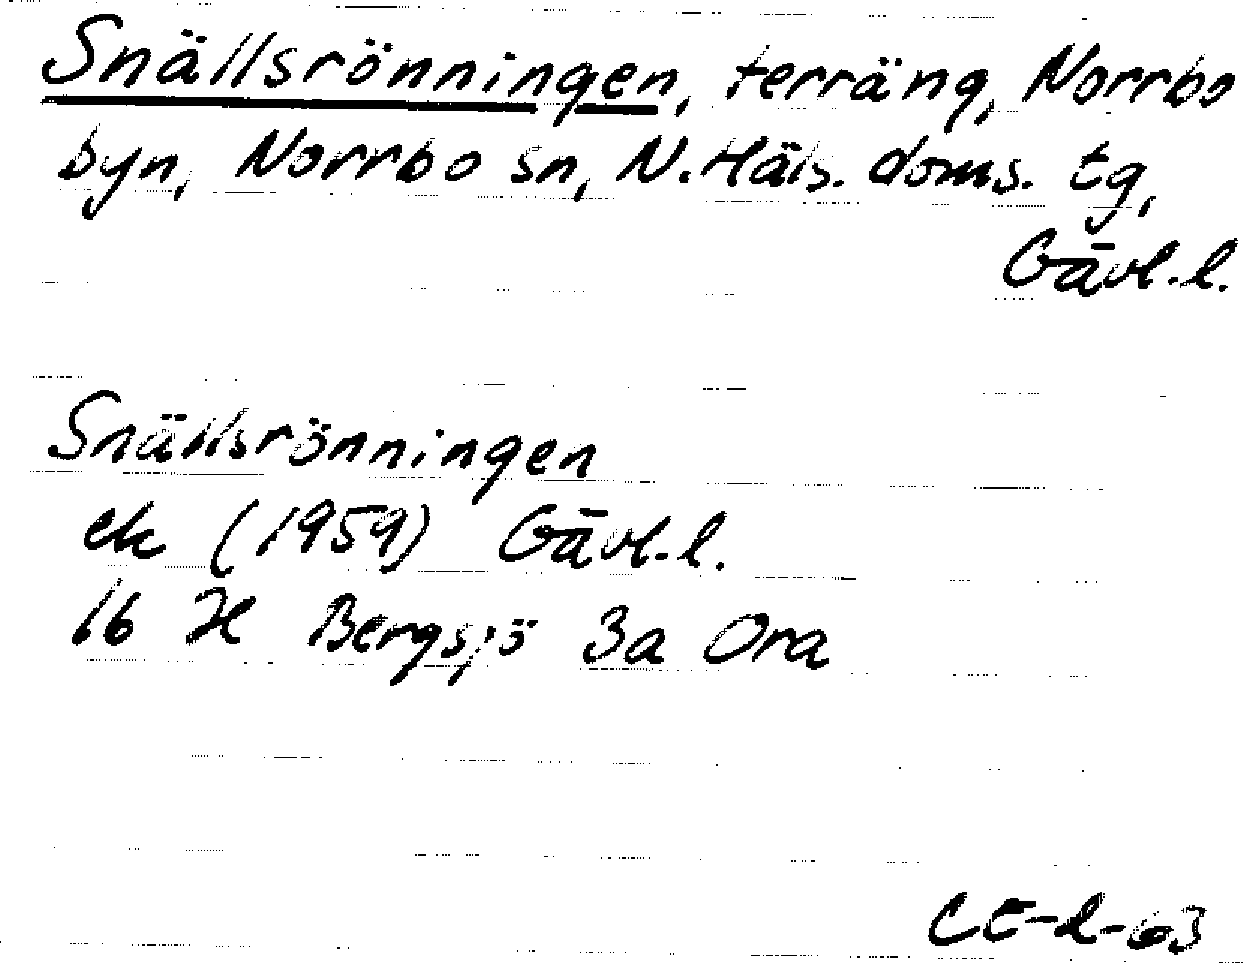 Snällsrönningen, terräng, Norrbo
byn, Norrbo sn, N. Häls. doms. tg,
Gävl. l.
Snällsrönningen
ek (1959) Gävl. l.
16 H Bergsjö 3a Ora
CE-l-63